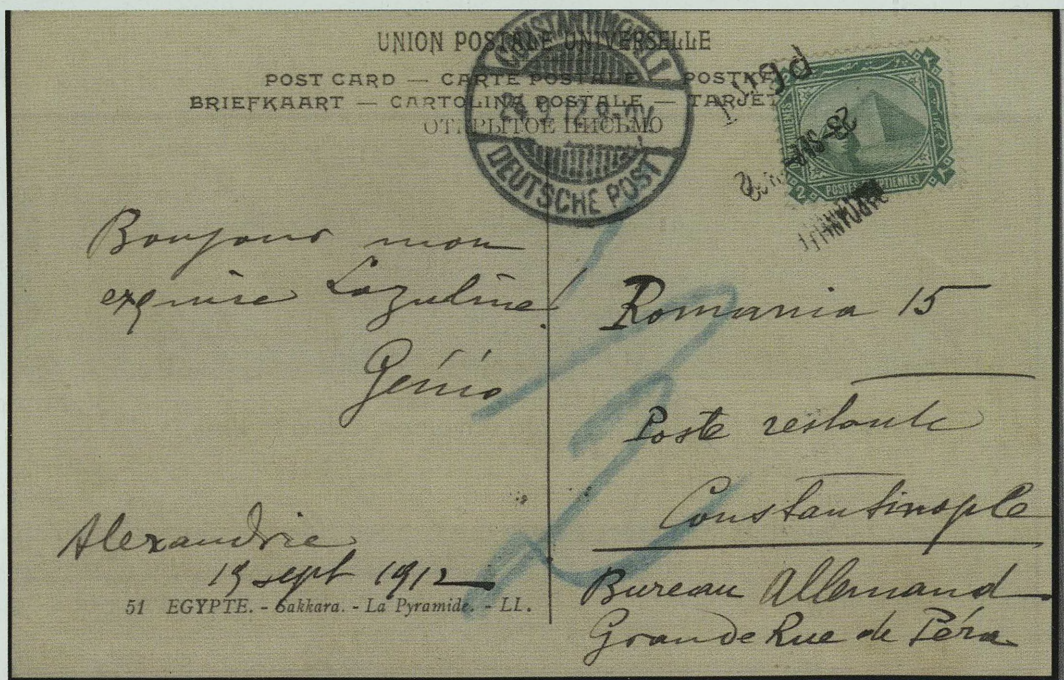 UNION POSTALE UNIVERSELLE
POST CARD — CARTE POSTALE — POSTKA
BRIEFKAART — CARTOLINA POSTALE — TARJET
ОТКРЫТОЕ ПИСЬМО
CONSTANTINOPEL 1
24 9 12 8-9V
DEUTSCHE POST
POSTES EGYPTIENNES
2
Bonjour mon
exquise Lazuline!
Génio
Alexandrie
19 sept 1912
51 EGYPTE. - Sakkara. - La Pyramide. - LL.
Romania 15
Poste restante
Constantinople
Bureau Allemand
Grande Rue de Péra